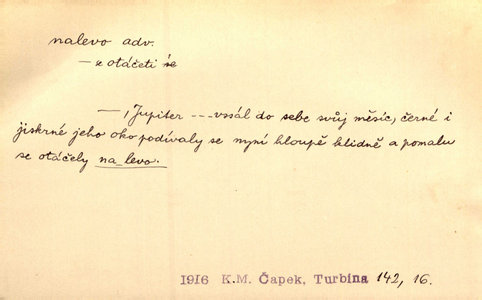 nalevo adv.
— z otáčeti se
— , Jupiter --- vssál do sebe svůj měsíc, černé i
jiskrné jeho oko podívaly se nyní hloupě klidně a pomalu
se otáčely na levo.
1916 K.M. Čapek, Turbina 142, 16.